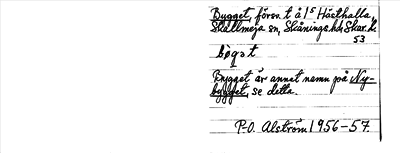 Bygget, fören. t å 1⁵ Hästhalla
Skallmeja sn, Skånings hd, Skar. l.
53
bøgət
Bygget är annat namn på Ny-
bygget, se detta.
P-O. Alström 1956-57.